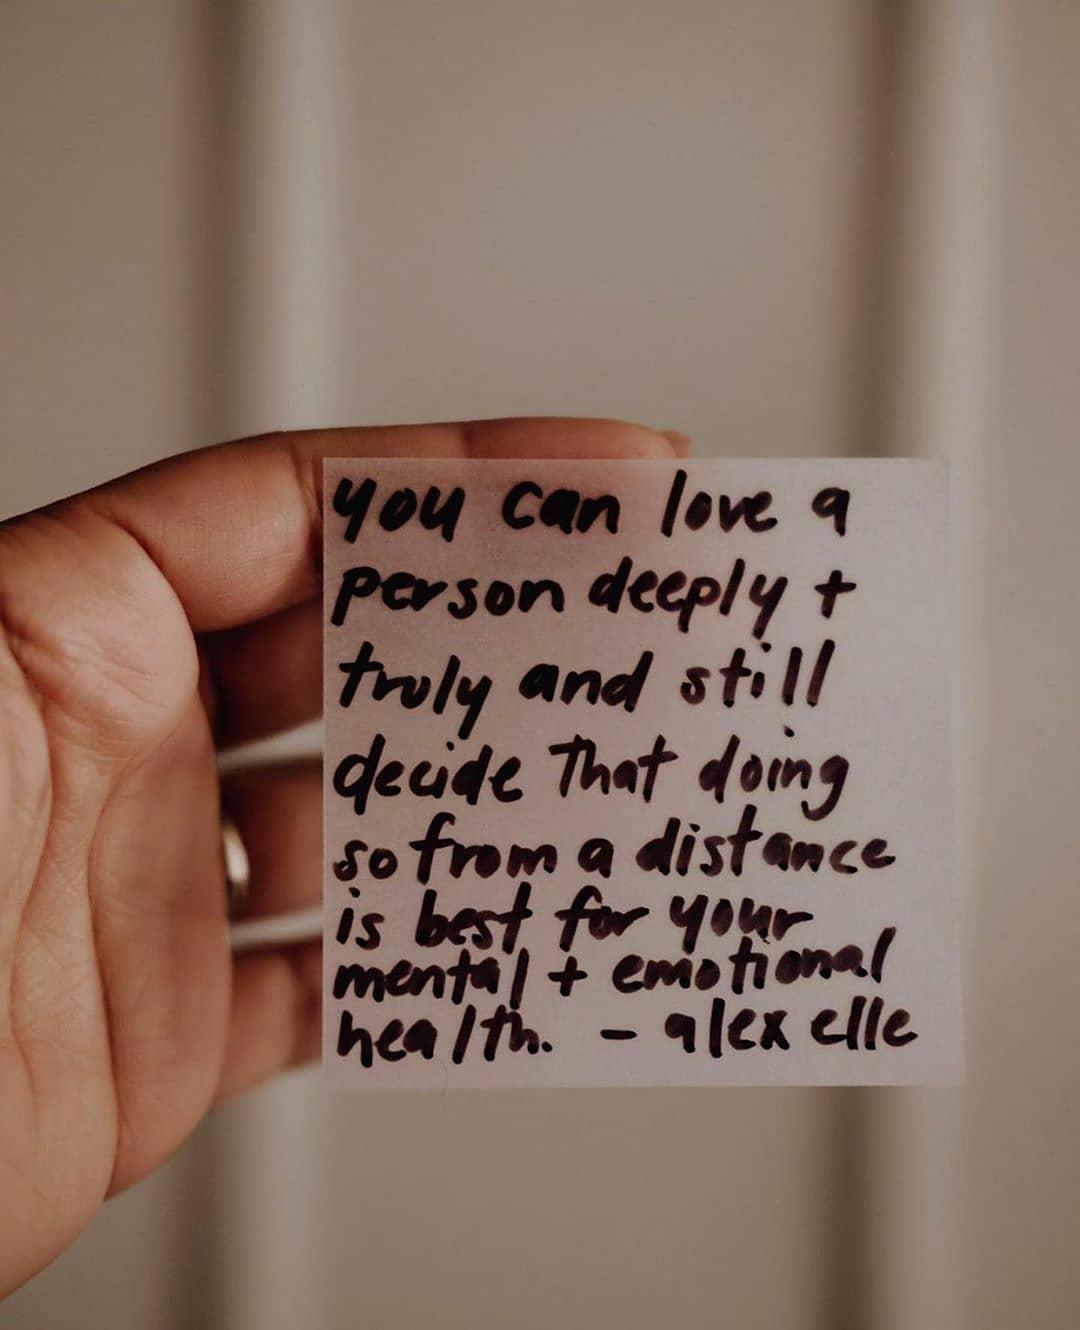 you can love a
person deeply +
truly and still
decide That doing
so from a distance
is best for your
mental + emotional
health. - alex elle